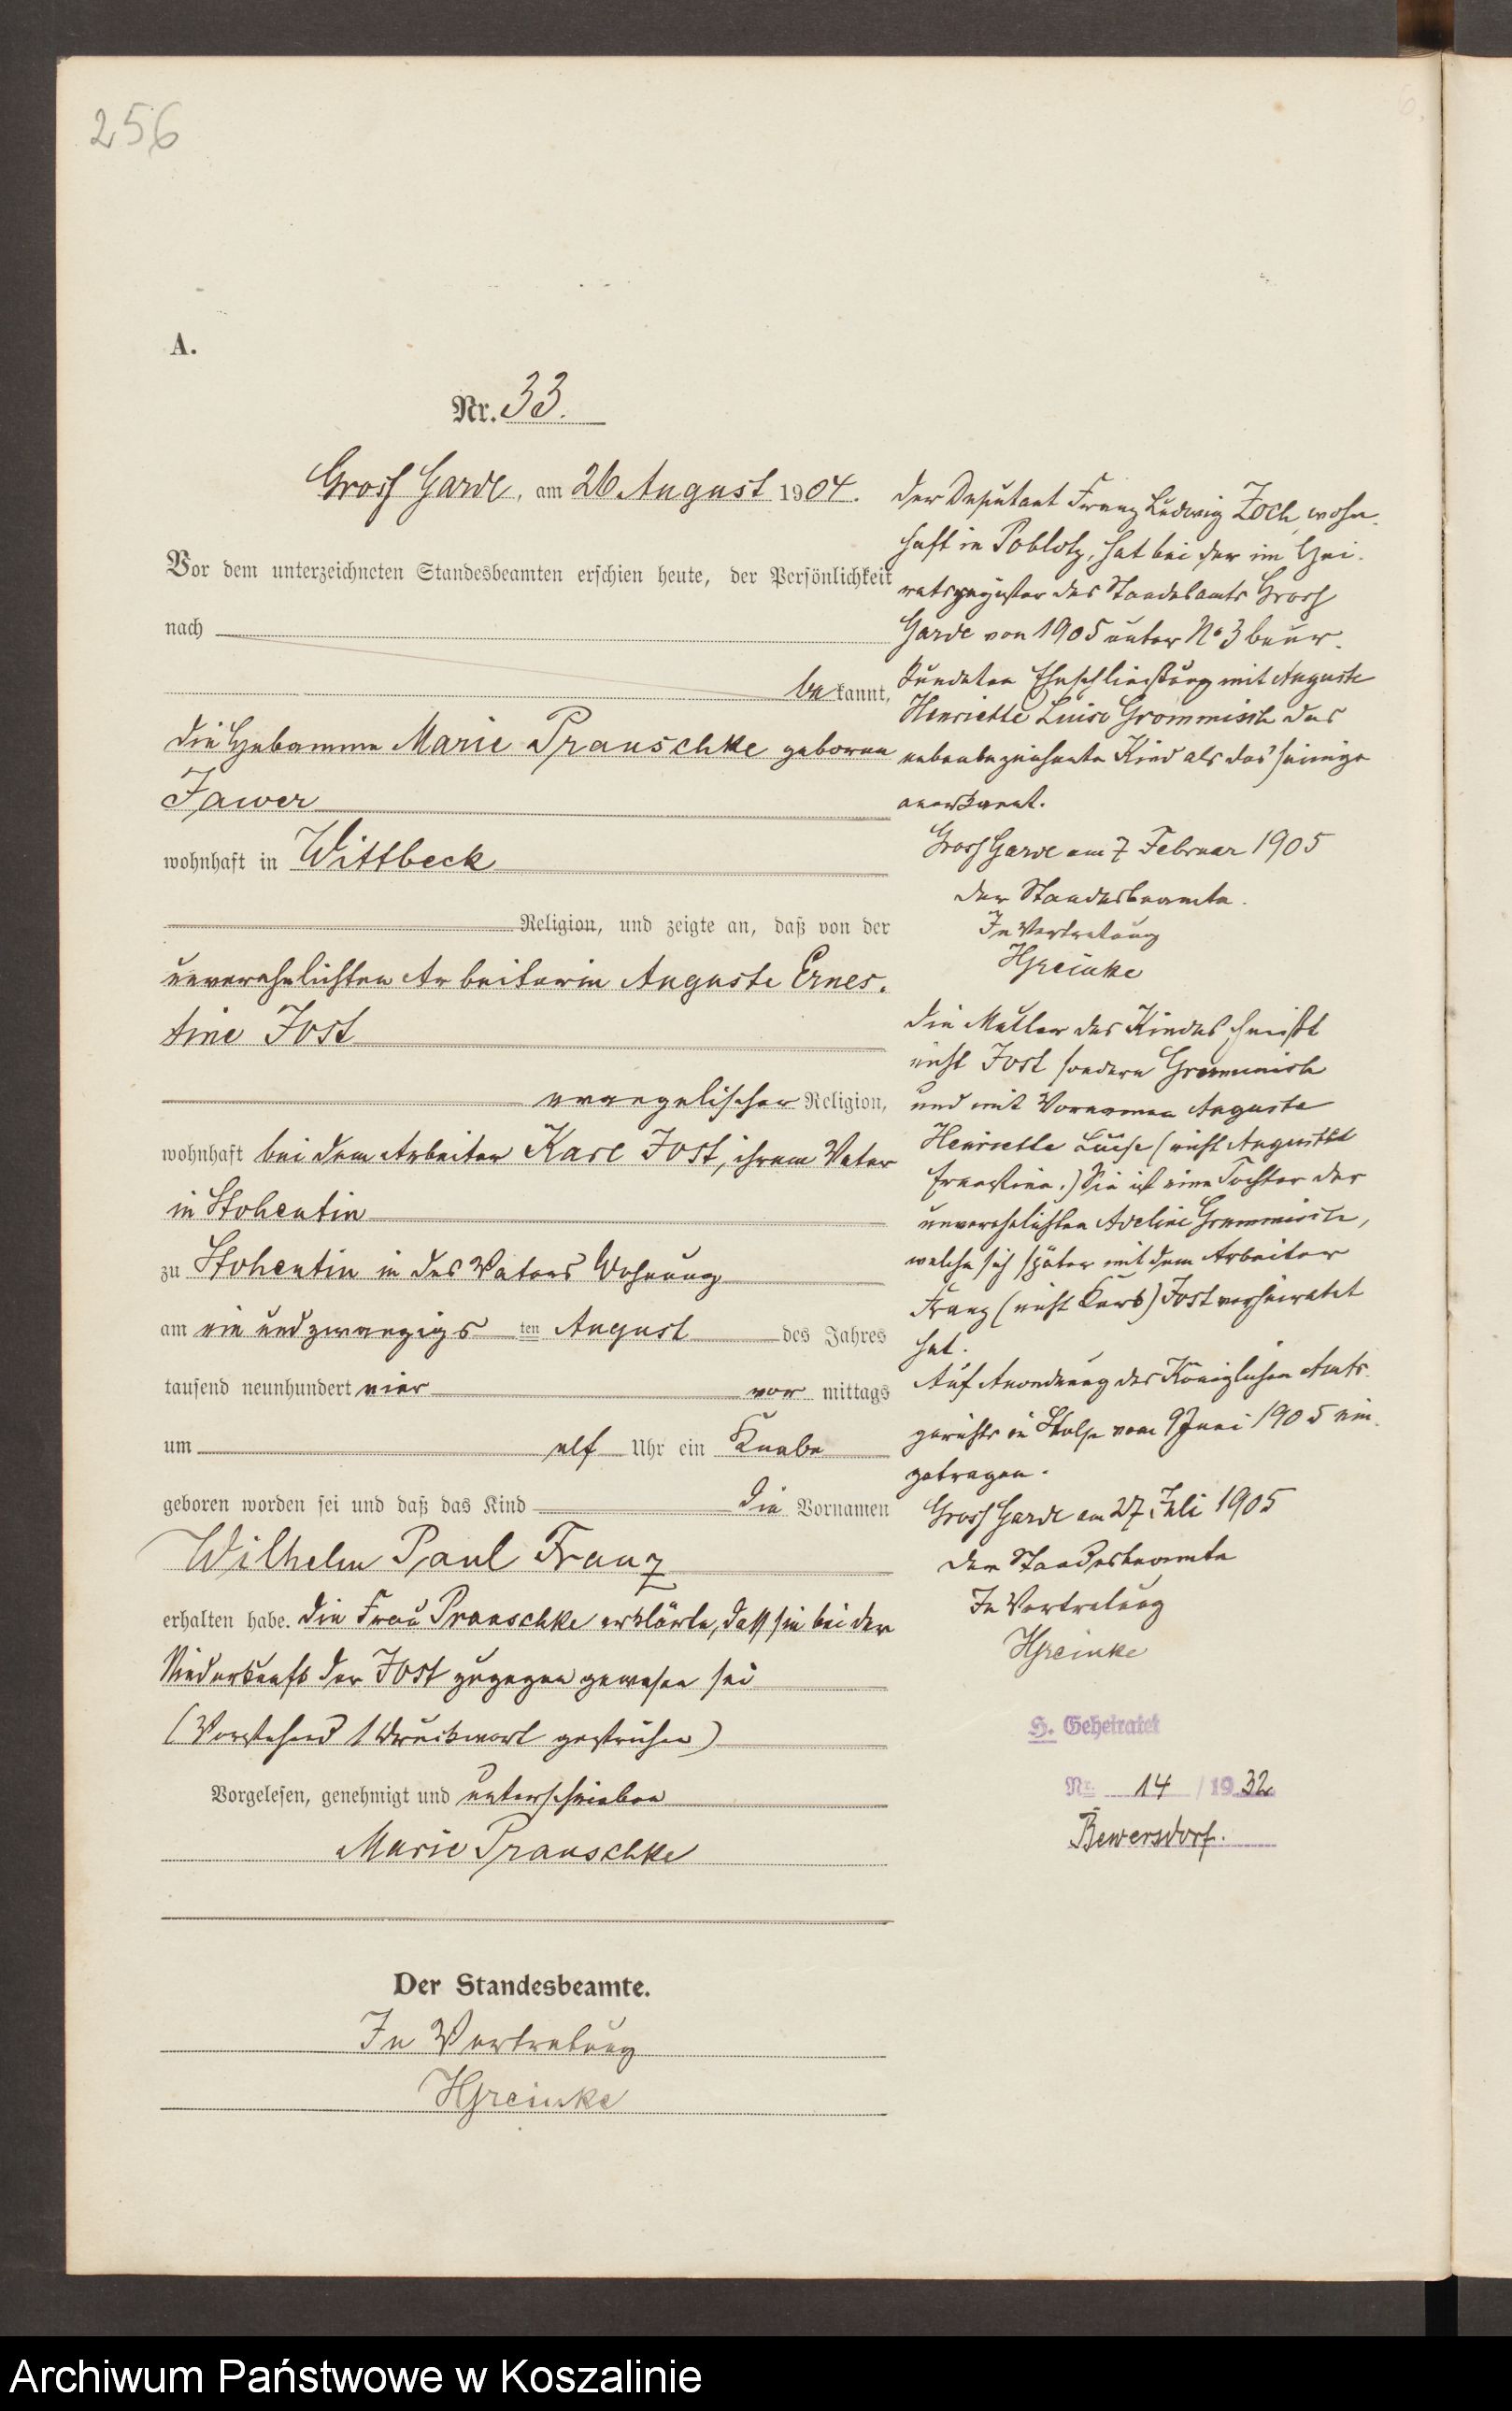 256
A.
Nr. 33.
Gross Garde, am 26 August 1904.
Vor dem unterzeichneten Standesbeamten erschien heute, der Persönlichkeit
nach
bekannt,
die Hebamme Marie Prauschke geboren
Jawer
wohnhaft in Wittbeck
Religion, und zeigte an, daß von der
unverehelichten Arbeiterin Auguste Ernes-
tine Jost
evangelischer Religion,
wohnhaft bei dem Arbeiter Karl Jost, ihrem Vater
in Stohentin
zu Stohentin in des Vaters Wohnung
am ein und zwanzigsten August des Jahres
tausend neunhundert vier vor mittags
um elf Uhr ein Knabe
geboren worden sei und daß das Kind die Vornamen
Wilhelm Paul Franz
erhalten habe. Die Frau Prauschke erklärte, dass sie bei der
Niederkunft der Jost zugegen gewesen sei
(Vorstehend 1 Druckwort gestrichen)
Vorgelesen, genehmigt und unterschrieben
Marie Prauschke
Der Standesbeamte.
In Vertretung
HGreinke
Der Deputant Franz Ludwig Zoch, wohn-
haft in Poblotz, hat bei der im Hei-
ratsregister des Standesamts Gross
Garde von 1905 unter No 3 beur-
kundeten Eheschließung mit Auguste
Henriette Luise Grommisch das
nebenbezeichnete Kind als das seinige
anerkannt.
Gross Garde am 7 Februar 1905
Der Standesbeamte.
In Vertretung
HGreinke
Die Mutter des Kindes heißt
nicht Jost sondern Grommisch
und mit Vornamen Auguste
Henriette Luise (nicht Auguste
Ernestine.) Sie ist eine Tochter der
unverehelichten Aveline Grommisch,
welche sich später mit dem Arbeiter
Franz (nicht Karl) Jost verheiratet
hat.
Auf Anordnung des Königlichen Amts-
gerichts in Stolp vom 9 Juni 1905 ein-
getragen.
Gross Garde am 27 Juli 1905
Der Standesbeamte
In Vertretung
HGreinke
H. Geheiratet
Nr. 14 / 1932
Bewersdorf.
Archiwum Państwowe w Koszalinie